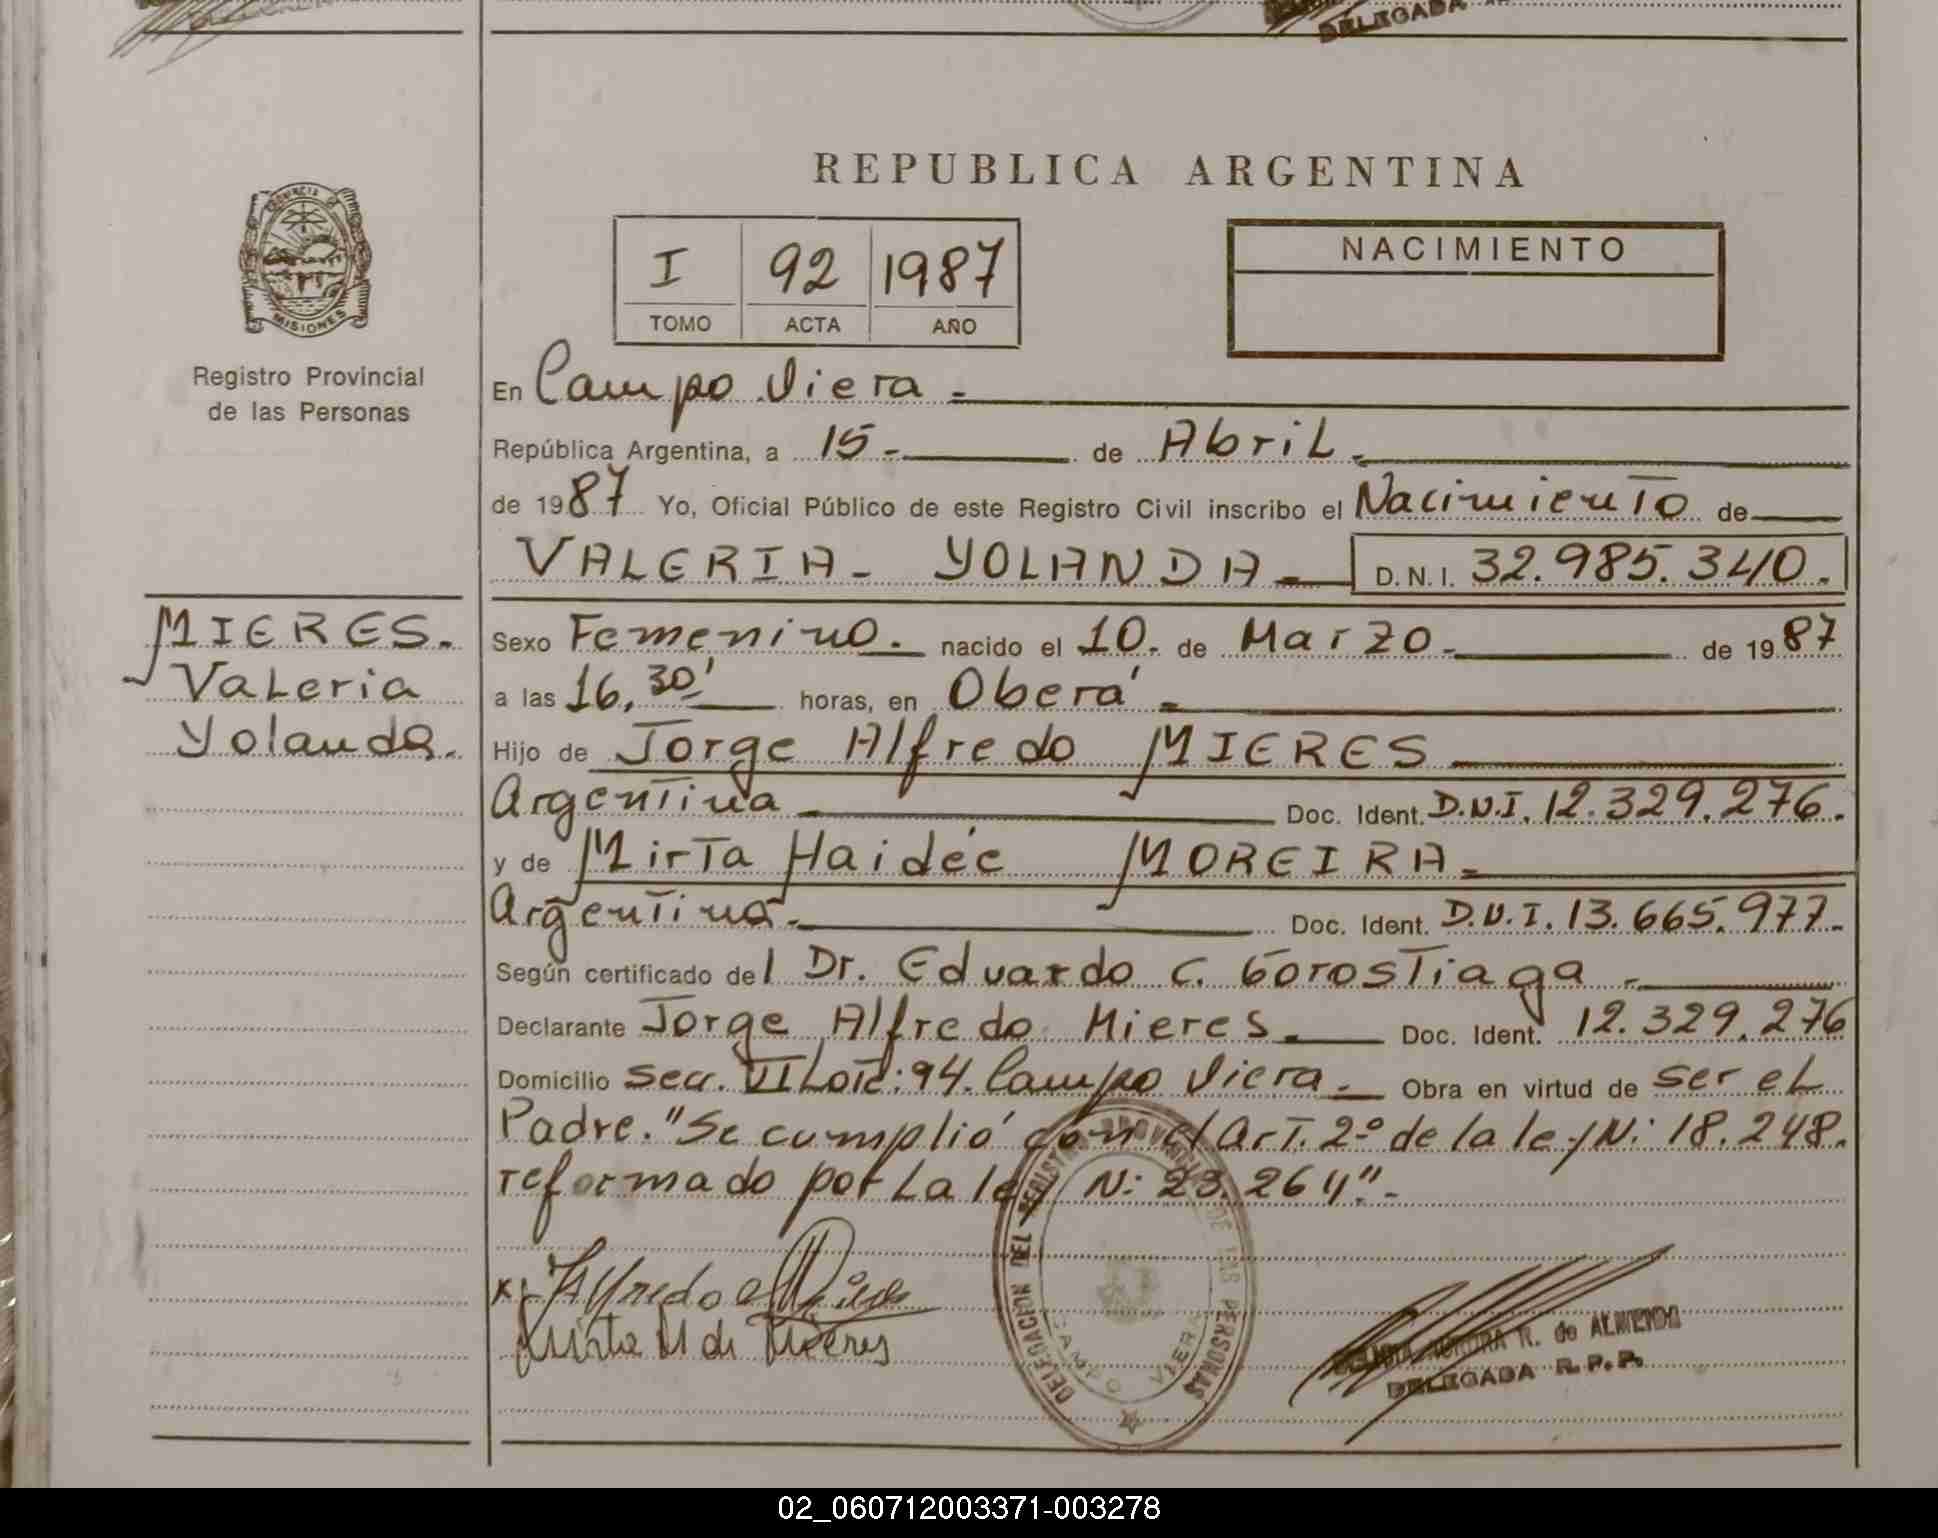 DELEGADA
REPUBLICA ARGENTINA
PROVINCIA DE
MISIONES
Registro Provincial
de las Personas
I 92 1987
TOMO ACTA AÑO
NACIMIENTO
En Campo Viera.-
República Argentina, a 15.- de Abril.-
de 1987 Yo, Oficial Público de este Registro Civil inscribo el Nacimiento de
VALERIA- YOLANDA.- D.N.I. 32.985.340.
MIERES.
Valeria
Yolanda.
Sexo Femenino.- nacido el 10. de Marzo.- de 1987
a las 16,30' horas, en Oberá.-
Hijo de Jorge Alfredo MIERES
Argentina Doc. Ident. D.N.I. 12.329.276.
y de Mirta Haidée MOREIRA.-
Argentina.- Doc. Ident. D.N.I. 13.665.977.-
Según certificado del Dr. Eduardo C. Gorostiaga.-
Declarante Jorge Alfredo Mieres.- Doc. Ident. 12.329.276
Domicilio Secc. VI Lote: 94. Campo Viera.- Obra en virtud de ser el
Padre. "Se cumplió con el Art. 2º de la ley N: 18.248.
reformado por la ley N: 23.264".-
DELEGACION DEL REGISTRO PROVINCIAL DE LAS PERSONAS
CAMPO VIERA
Mirta M de Mieres
R. de ALMEIDA
DELEGADA R.P.P.
02_060712003371-003278